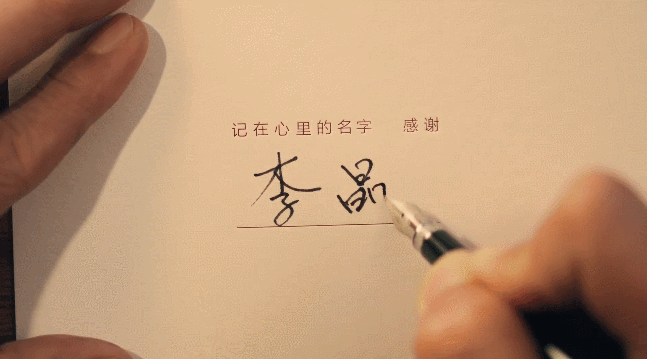 记在心里的名字 感谢
李晶